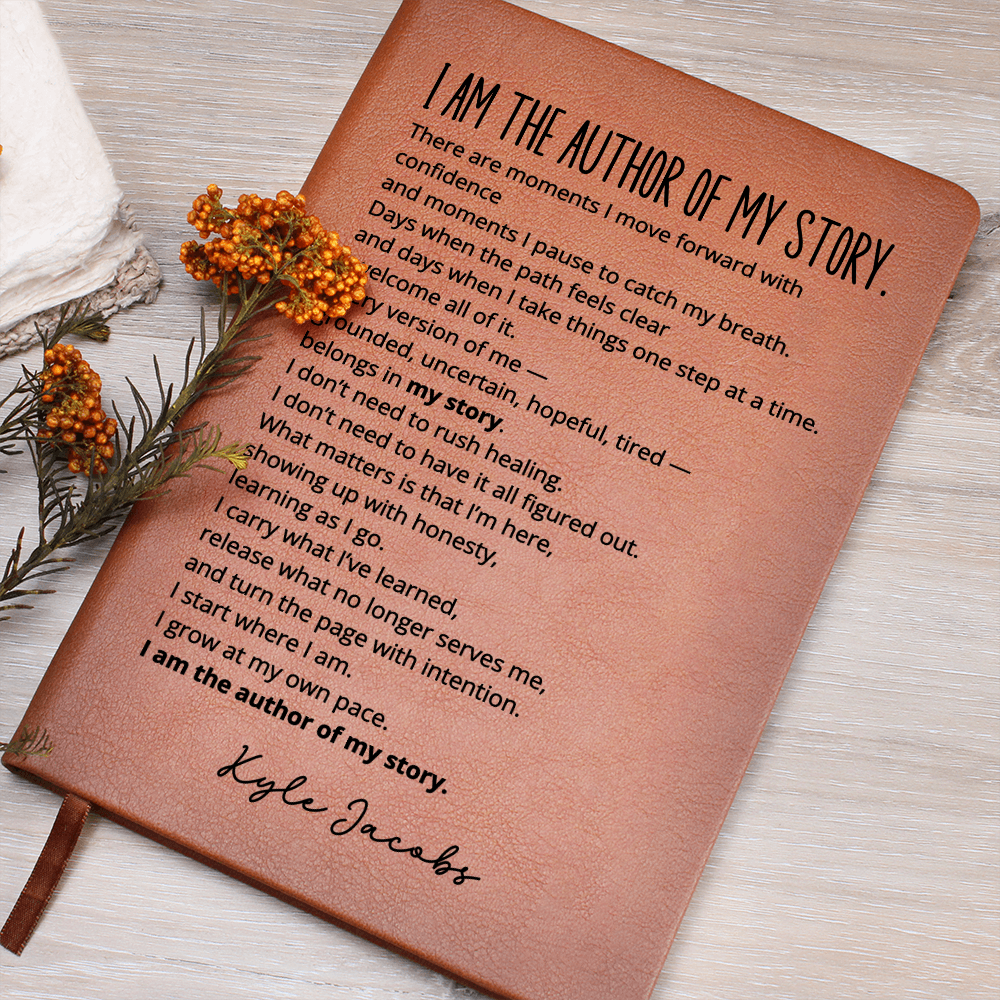 I AM THE AUTHOR OF MY STORY.
There are moments I move forward with
confidence
and moments I pause to catch my breath.
Days when the path feels clear
and days when I take things one step at a time.
welcome all of it.
ry version of me —
grounded, uncertain, hopeful, tired —
belongs in my story.
I don't need to rush healing.
I don't need to have it all figured out.
What matters is that I'm here,
showing up with honesty,
learning as I go.
I carry what I've learned,
release what no longer serves me,
and turn the page with intention.
I start where I am.
I grow at my own pace.
I am the author of my story.
Kyle Jacobs